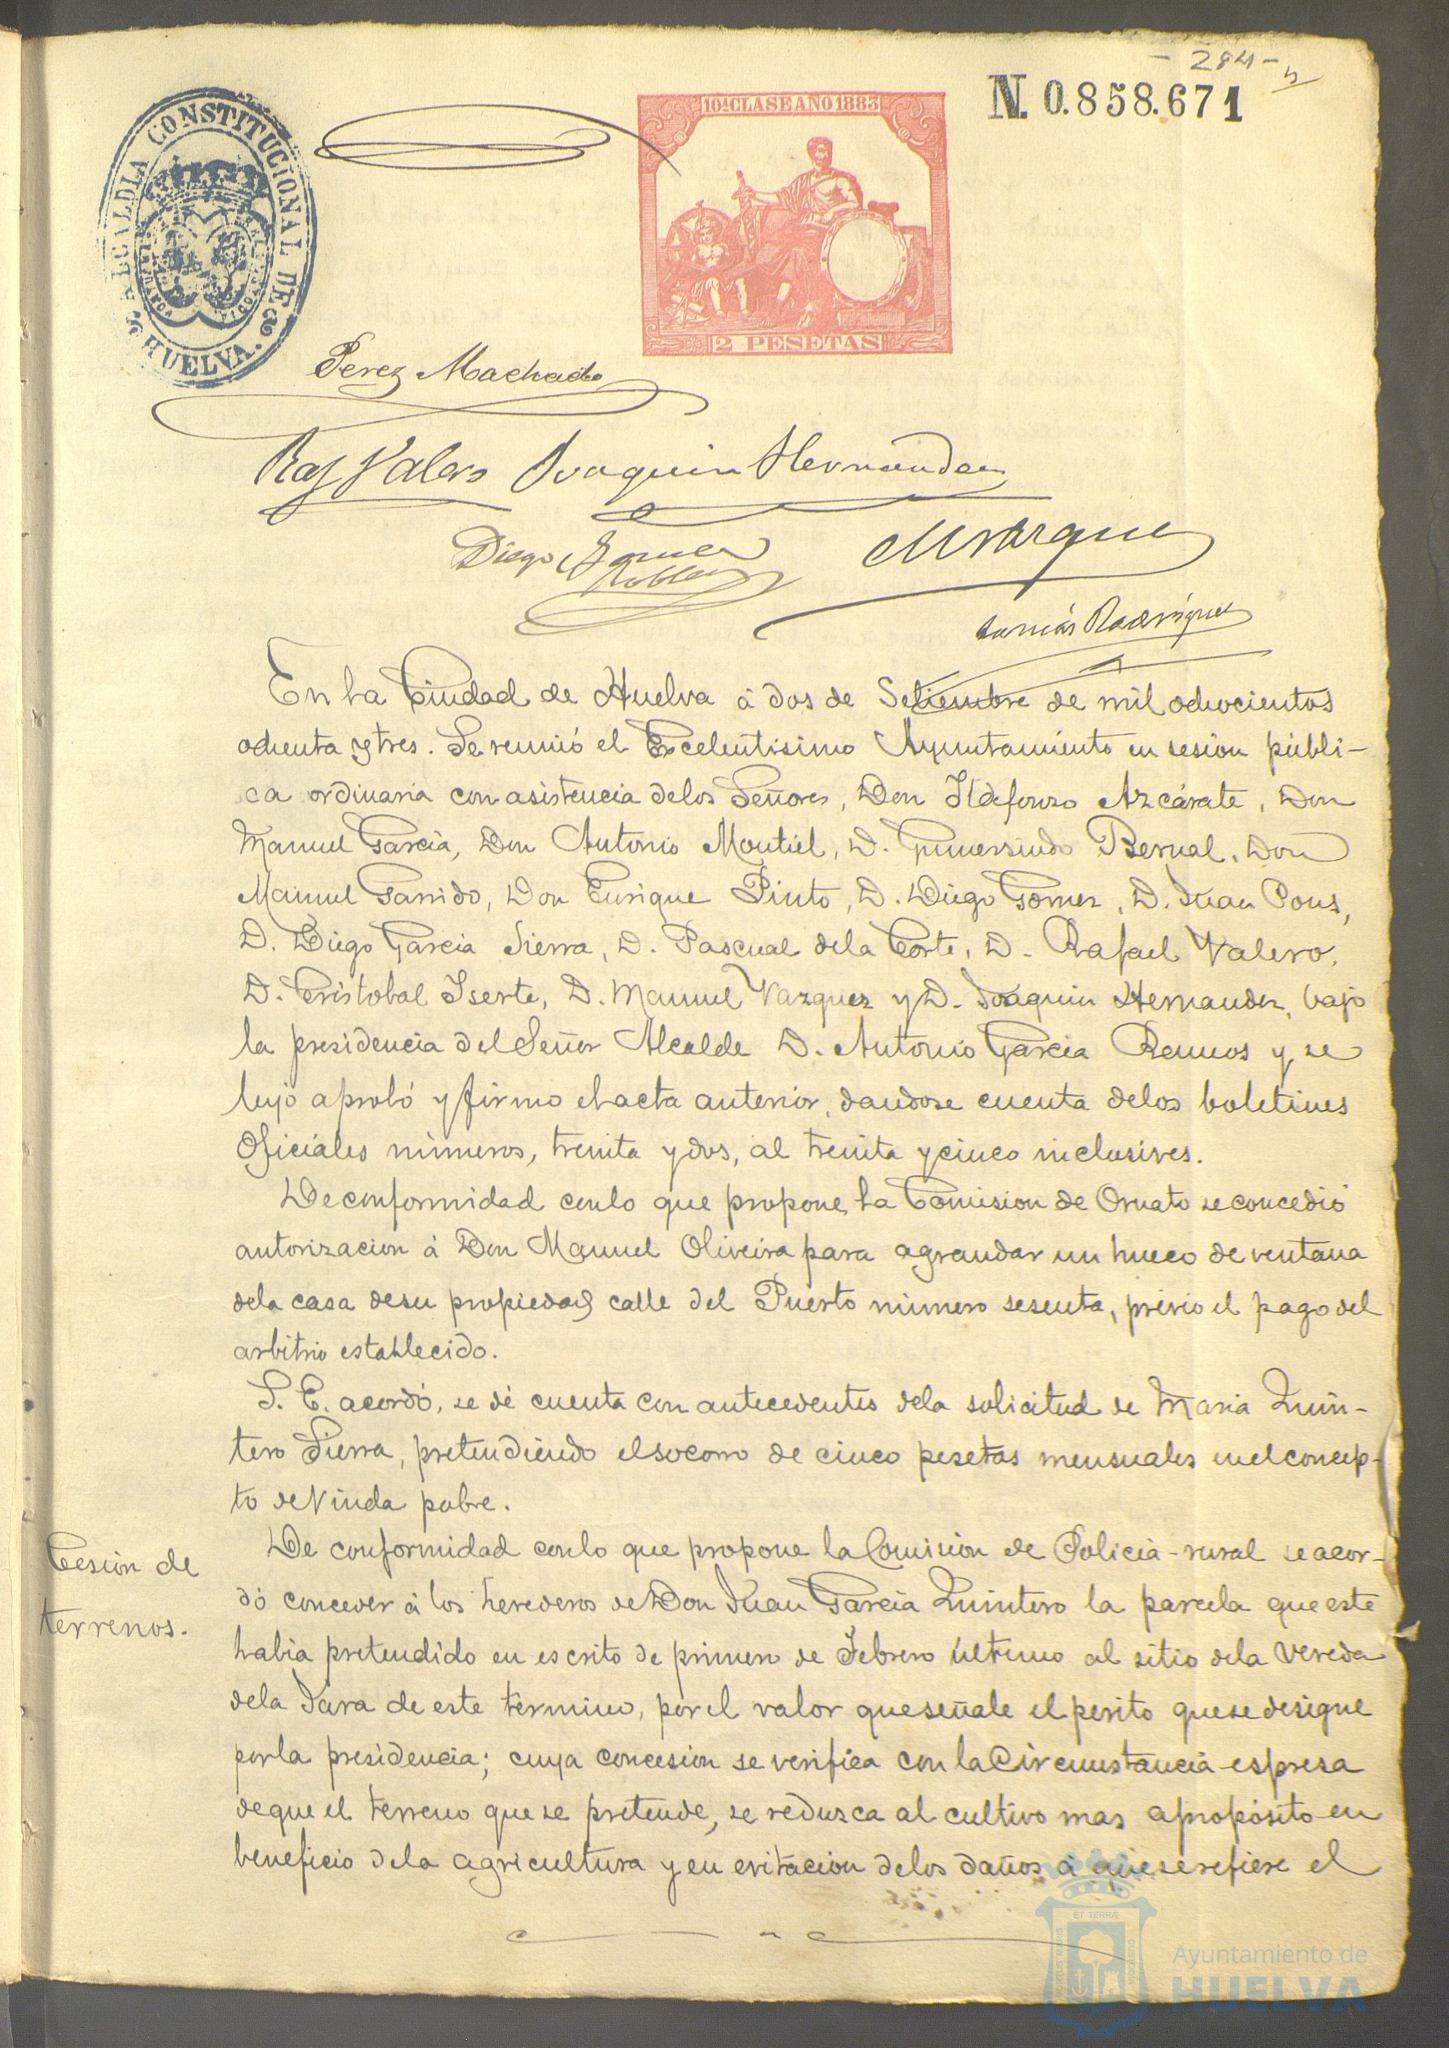 - 284 -
N. 0.858.671
10ª CLASE AÑO 1883
2 PESETAS
ALCALDIA CONSTITUCIONAL DE HUELVA.
Perez Machado
Raf Valero Joaquin Hernandez
Diego Gomez Marquez
Robles
Tomás Rodriguez
En la Ciudad de Huelva á dos de Setiembre de mil ochocientos
ochenta y tres. Se reunió el Escelentisimo Ayuntamiento en sesion públi-
ca ordinaria con asistencia de los Señores, Don Ildefonso Azcárate, Don
Manuel Garcia, Don Antonio Montiel, D. Gumersindo Bernal, Don
Manuel Garrido, Don Enrique Pinto, D. Diego Gomez, D. Juan Pons,
D. Diego Garcia Sierra, D. Pascual de la Corte, D. Rafael Valero,
D. Cristobal Iserte, D. Manuel Vazquez y D. Joaquin Hernandez, bajo
la presidencia del Señor Alcalde D. Antonio Garcia Ramos y se
leyó aprobó y firmo el acta anterior, dandose cuenta de los boletines
Oficiales números, treinta y dos, al treinta y cinco inclusives.
De conformidad con lo que propone la Comision de Ornato se concedió
autorizacion á Don Manuel Oliveira para agrandar un hueco de ventana
de la casa de su propiedad calle del Puerto número sesenta, previo el pago del
arbitrio establecido.
S. E. acordó, se dé cuenta con antecedentes de la solicitud de Maria Quin-
tero Sierra, pretendiendo el socorro de cinco pesetas mensuales en el concep-
to de Viuda pobre.
Cesión de
terrenos.
De conformidad con lo que propone la Comisión de Policia-rural se acor-
dó conceder á los herederos de Don Juan Garcia Quintero la parcela que este
habia pretendido en escrito de primero de Febrero último al sitio de la Vereda
de la Jara de este término, por el valor que señale el perito que se designe
por la presidencia; cuya concesion se verifica con la Circunstancia espresa
de que el terreno que se pretende, se reduzca al cultivo mas aproposito en
beneficio de la agricultura y en evitacion de los daños á que se refiere el
ET TERRÆ
Ayuntamiento de
HUELVA